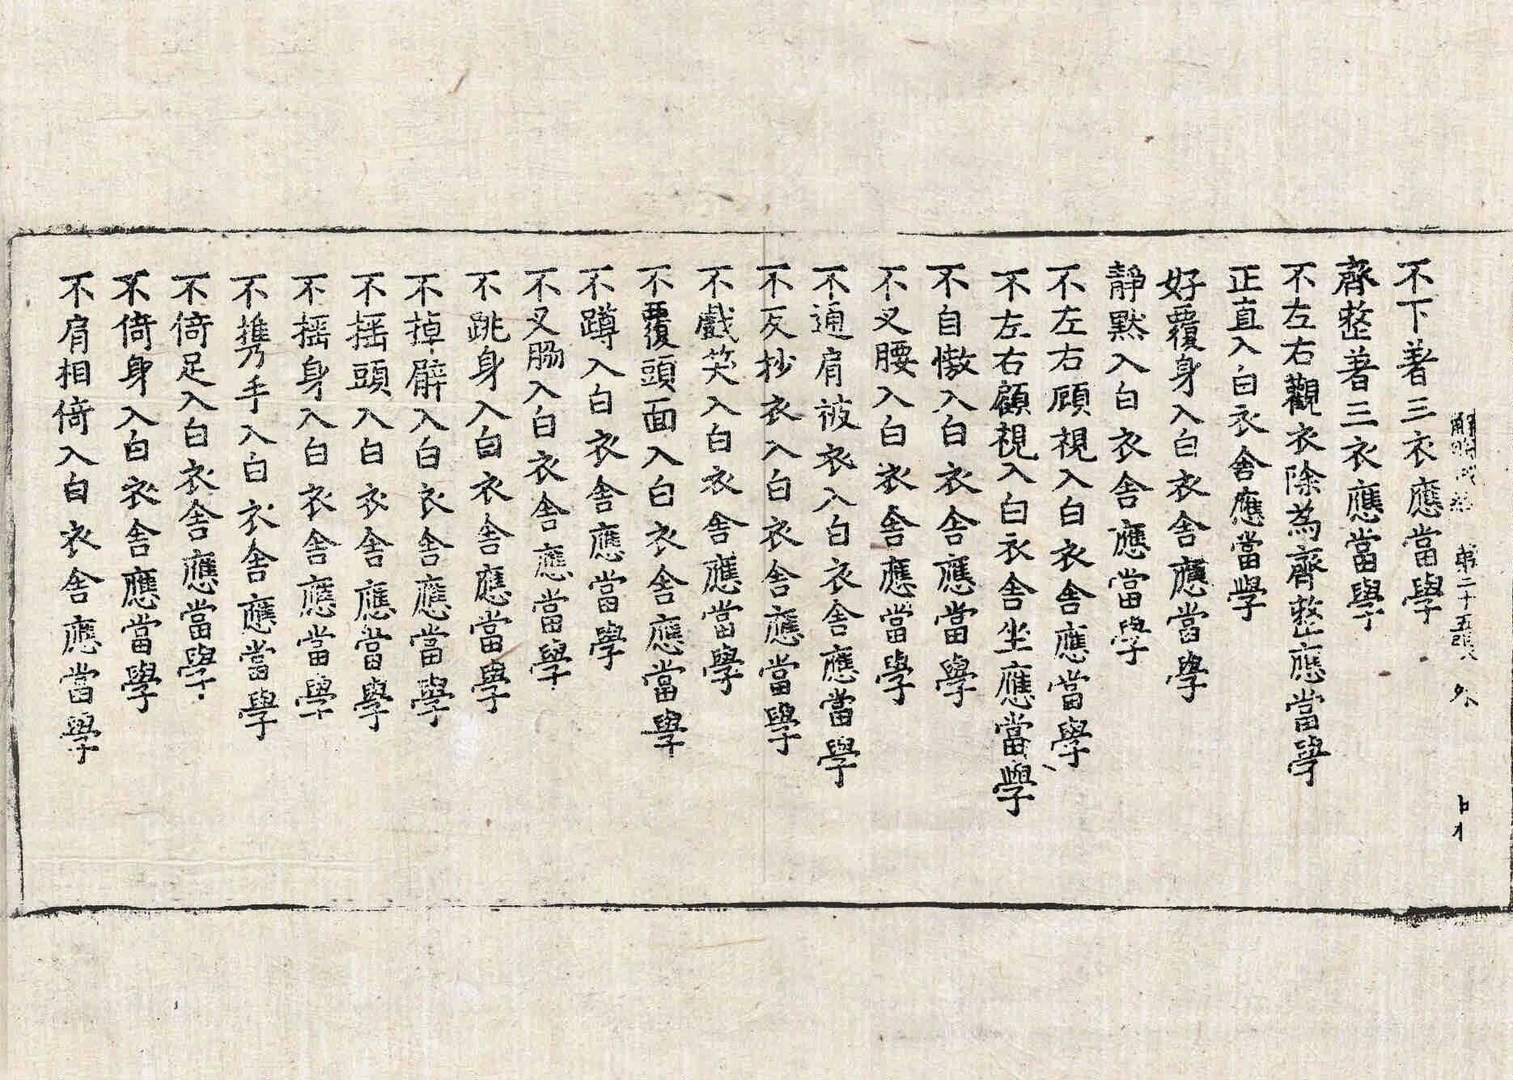 解脫戒經 第二十五張 外
不下著三衣應當學
齊整著三衣應當學
不左右觀衣除為齊整應當學
正直入白衣舍應當學
好覆身入白衣舍應當學
靜默入白衣舍應當學
不左右顧視入白衣舍應當學
不左右顧視入白衣舍坐應當學
不自慠入白衣舍應當學
不叉腰入白衣舍應當學
不通肩被衣入白衣舍應當學
不反抄衣入白衣舍應當學
不戲笑入白衣舍應當學
不覆頭面入白衣舍應當學
不蹲入白衣舍應當學
不叉脇入白衣舍應當學
不跳身入白衣舍應當學
不掉臂入白衣舍應當學
不揺頭入白衣舍應當學
不揺身入白衣舍應當學
不攜手入白衣舍應當學
不倚足入白衣舍應當學
不倚身入白衣舍應當學
不肩相倚入白衣舍應當學